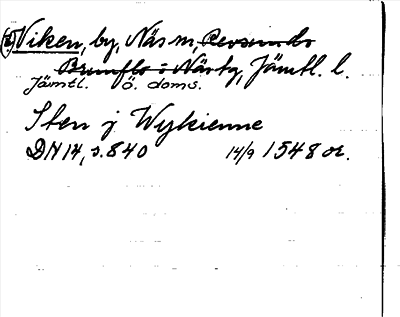 (2) Viken, by, Näs sn, Revsunds
Brunflo o Näs tg, Jämtl. l.
Jämtl. ö. doms.
Sten j Wylkienne
DN 14, s. 840 14/9 1548 or.